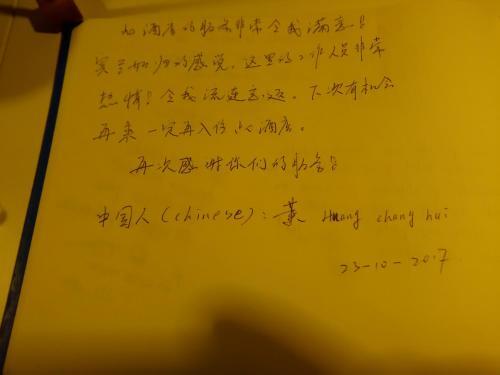 酒店的服务非常令我满意!
宾至如归的感觉,这里的工作人员非常
热情!令我流连忘返。下次有机会
再来一定再入住 酒店。
再次感谢你们的服务!
中国人(chinese):黄 Huang chang hui
23-10-2017